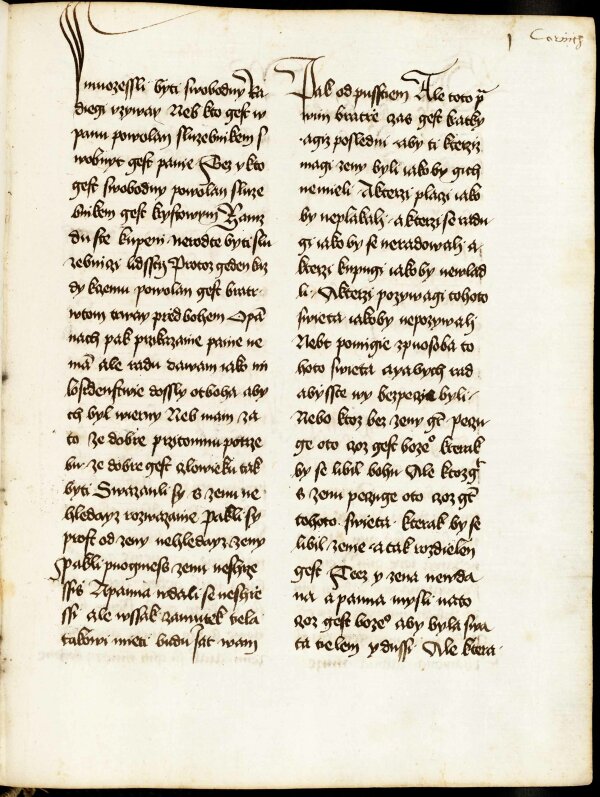 1 Corinth
muozessli byti swobodny ra
diegi vzyway Neb kto gest w
panu powolan sluzebnikem s
wobnyt gest panie Tez y kto
gest swobodny powolan sluze
bnikem gest krystowym
du ste kupeni nerodte byti slu
zebnizi lidssty Protoz geden kaz
dy kzemu powolan gest bratr
wtom trway przed bohem O pan
nach pak przikazanie panie ne
mam ale radu dawam iako mi
losrdenstwie dossly ot boha aby
ch byl wierny Neb mam za
to ze dobre przitomnu potrze
bu ze dobre gest czlowieku tak
byti Swazanli sy s zenu ne
hleday rozwazanie Pakli sy
prost od zeny nehleday zeny
Pakli poygmess zenu neshrze
ssis A panna wdali se neshrze
ssi ale wssak zamutek tiela
takowi mieti budu Jat wam
Pak odpusstiem Ale toto p
wim bratrie czas gest kratky
agiz posledni aby ti kterzi
magi zeny byli iakoby gich
nemieli A kterzi placzi iako
by neplakali a kterzi se radu
gi iako by se neradowali a
kterzi kupugi iako by newlad
li A kterzi pozywagi tohoto
swieta iakoby nepozywali
Nebt pomigie zpuosoba to
hoto swieta a ya bych rad
abysste wy bezpeczni byli
Nebo ktoz bez zeny gt peczu
ge oto czoz gest bozeho kterak
by se libil bohu Ale ktoz gt
s zenu peczuge oto czoz gt
tohoto swieta kterak by se
libil zenie a tak rozdielen
gest Teez y zena newda
na a panna mysli nato
czoz gest bozeho aby byla swa
ta tielem y dussi Ale ktera